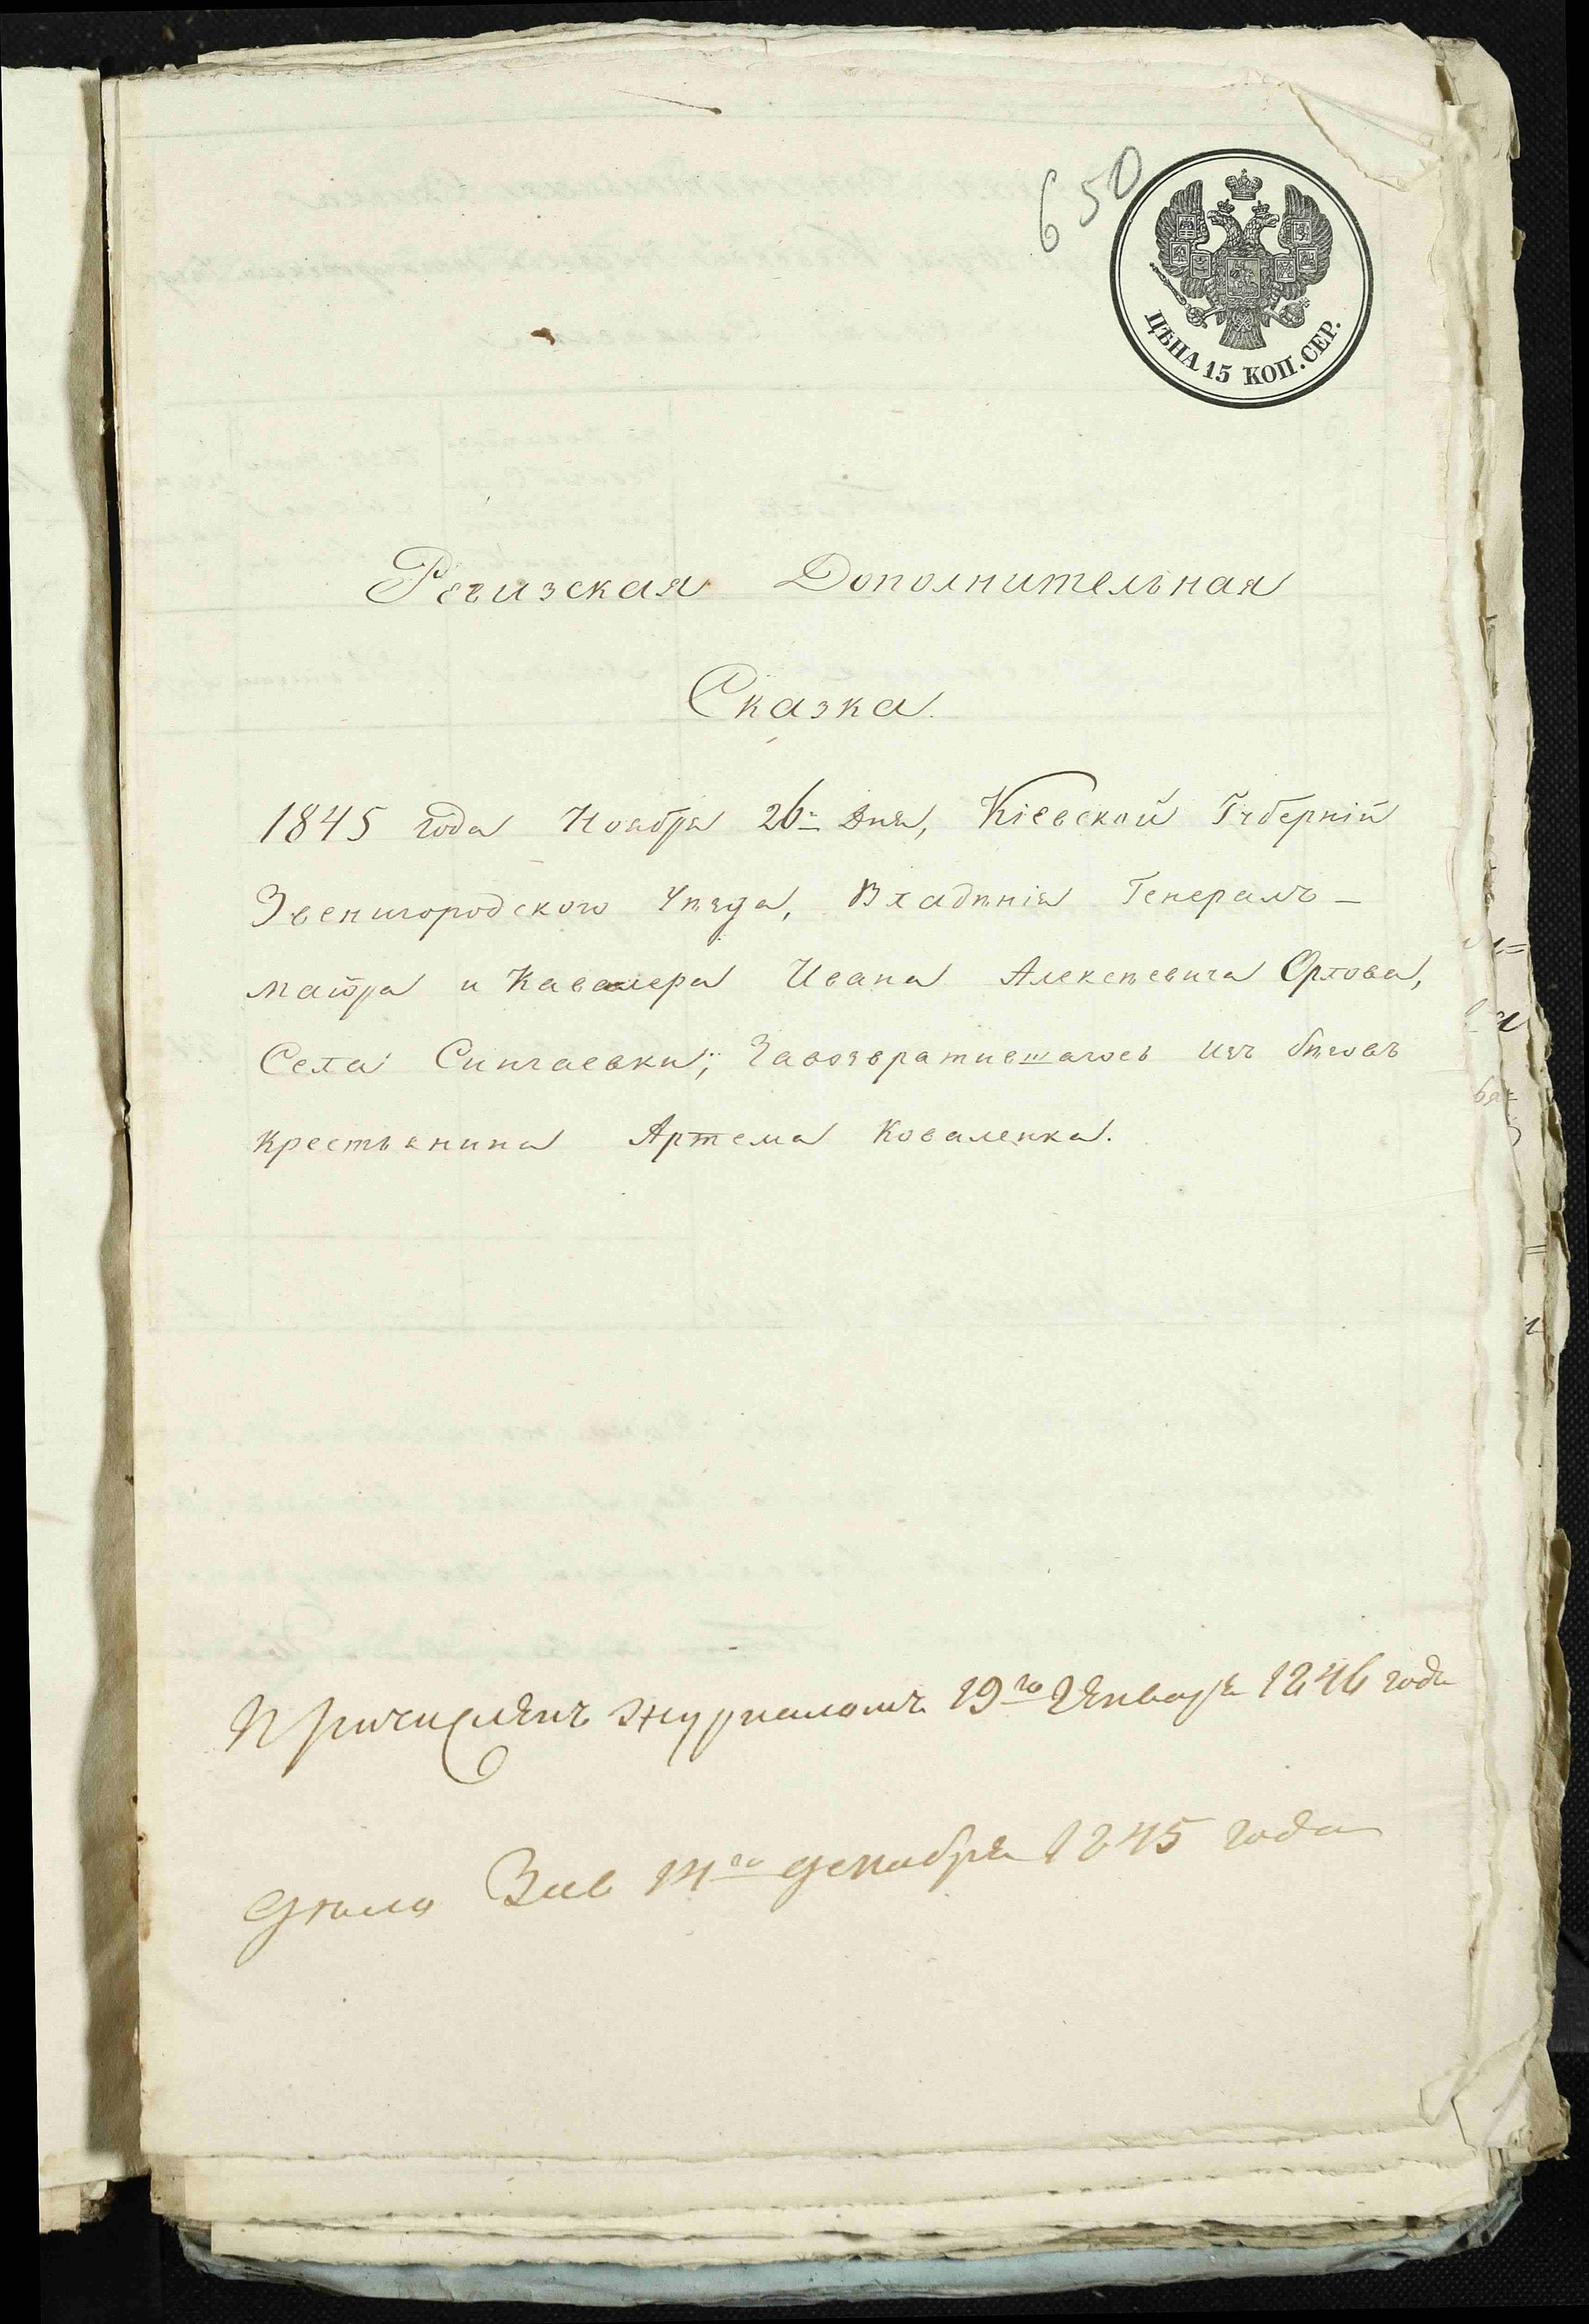 650
ЦѢНА 15 КОП. СЕР.
Ревизская Дополнительная
Сказка.
1845 года Ноября 26го Дня, Кіевской Губерніи
Звенигородского Уѣзда, Владѣнія Генералъ-
маіора и Кавалера Ивана Алексѣевича Орлова,
Села Сипчаевки; Завозвратившагось изъ бѣговъ
крестьянина Артема Коваленка.
Причисленъ журналомъ 19го Генваря 1846 года
дѣло 14го декабря 1845 года